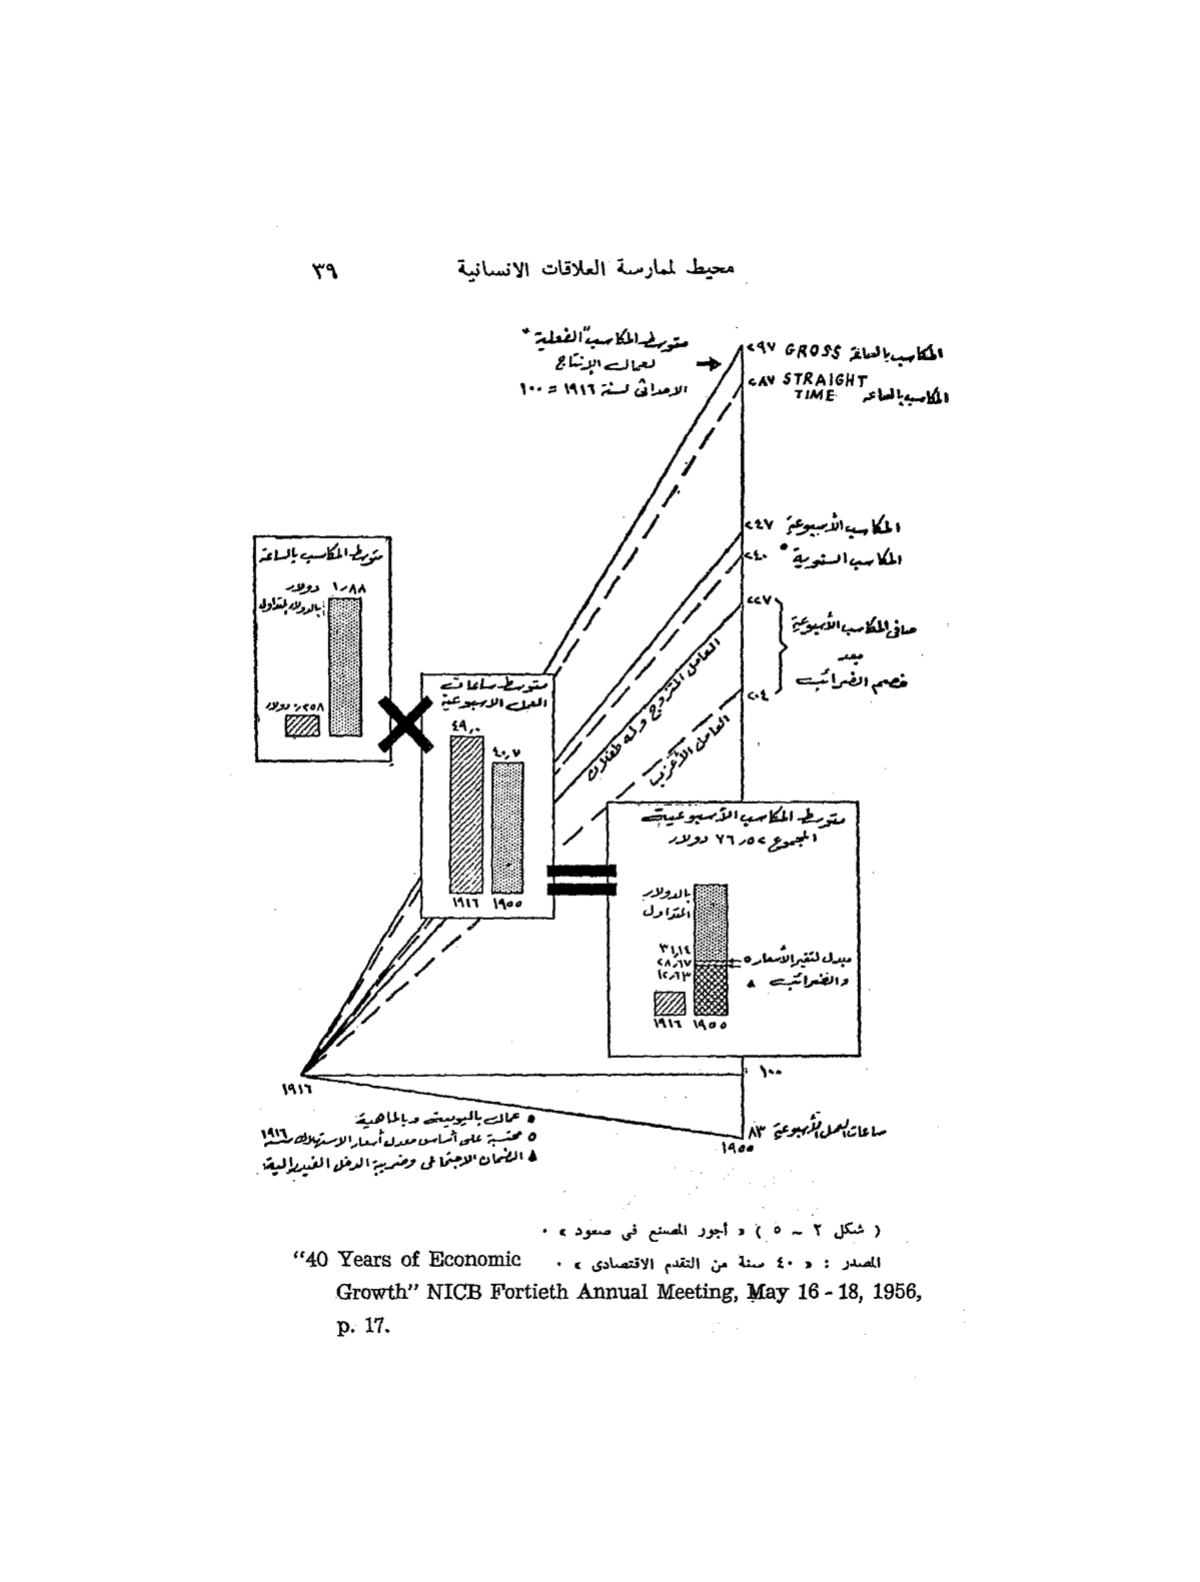 محيط لممارسة العلاقات الانسانية ٣٩
متوسط المكاسب "الفعلية" *
لعمال الإنتاج
الاحداثى لسنة ١٩١٦ = ١٠٠
٢٩٧ GROSS المكاسب بالساعة
٢٨٧ STRAIGHT TIME المكاسب بالساعة
٢٤٧ المكاسب الأسبوعية
٢٤٠ المكاسب السنوية •
٢٢٧
صافى المكاسب الأسبوعية
بعد
خصم الضرائب
٢٠٤
العامل المتزوج وله طفلان
العامل الأعزب
متوسط المكاسب بالساعة
١٫٨٨ دولار
بالدولار المتداول
٠٫٢٥٨ دولار
متوسط ساعات
العمل الاسبوعية
٤٩٫٠
٤٠٫٧
١٩١٦ ١٩٥٥
متوسط المكاسب الأسبوعية
المجموع ٧٦٫٥٢ دولار
بالدولار
المتداول
٣١٫١٤
٢٨٫٦٧
١٢٫٦٣
معدل لتغير الأسعار ٥
والضرائب ٨
١٩١٦ ١٩٥٥
١٠٠
١٩١٦
٨٣ ساعات العمل الأسبوعية
١٩٥٥
• عمال باليومية وبالماهية
٥ محتسبة على أساس معدل أسعار الاستهلاك سنة ١٩١٦
٨ الضمان الاجتماعى وضريبة الدخل الفيدرالية
( شكل ٢ ــ ٥ ) « أجور المصنع فى صعود » .
المصدر : « ٤٠ سنة من التقدم الاقتصادى » . "40 Years of Economic
Growth" NICB Fortieth Annual Meeting, May 16 - 18, 1956,
p. 17.